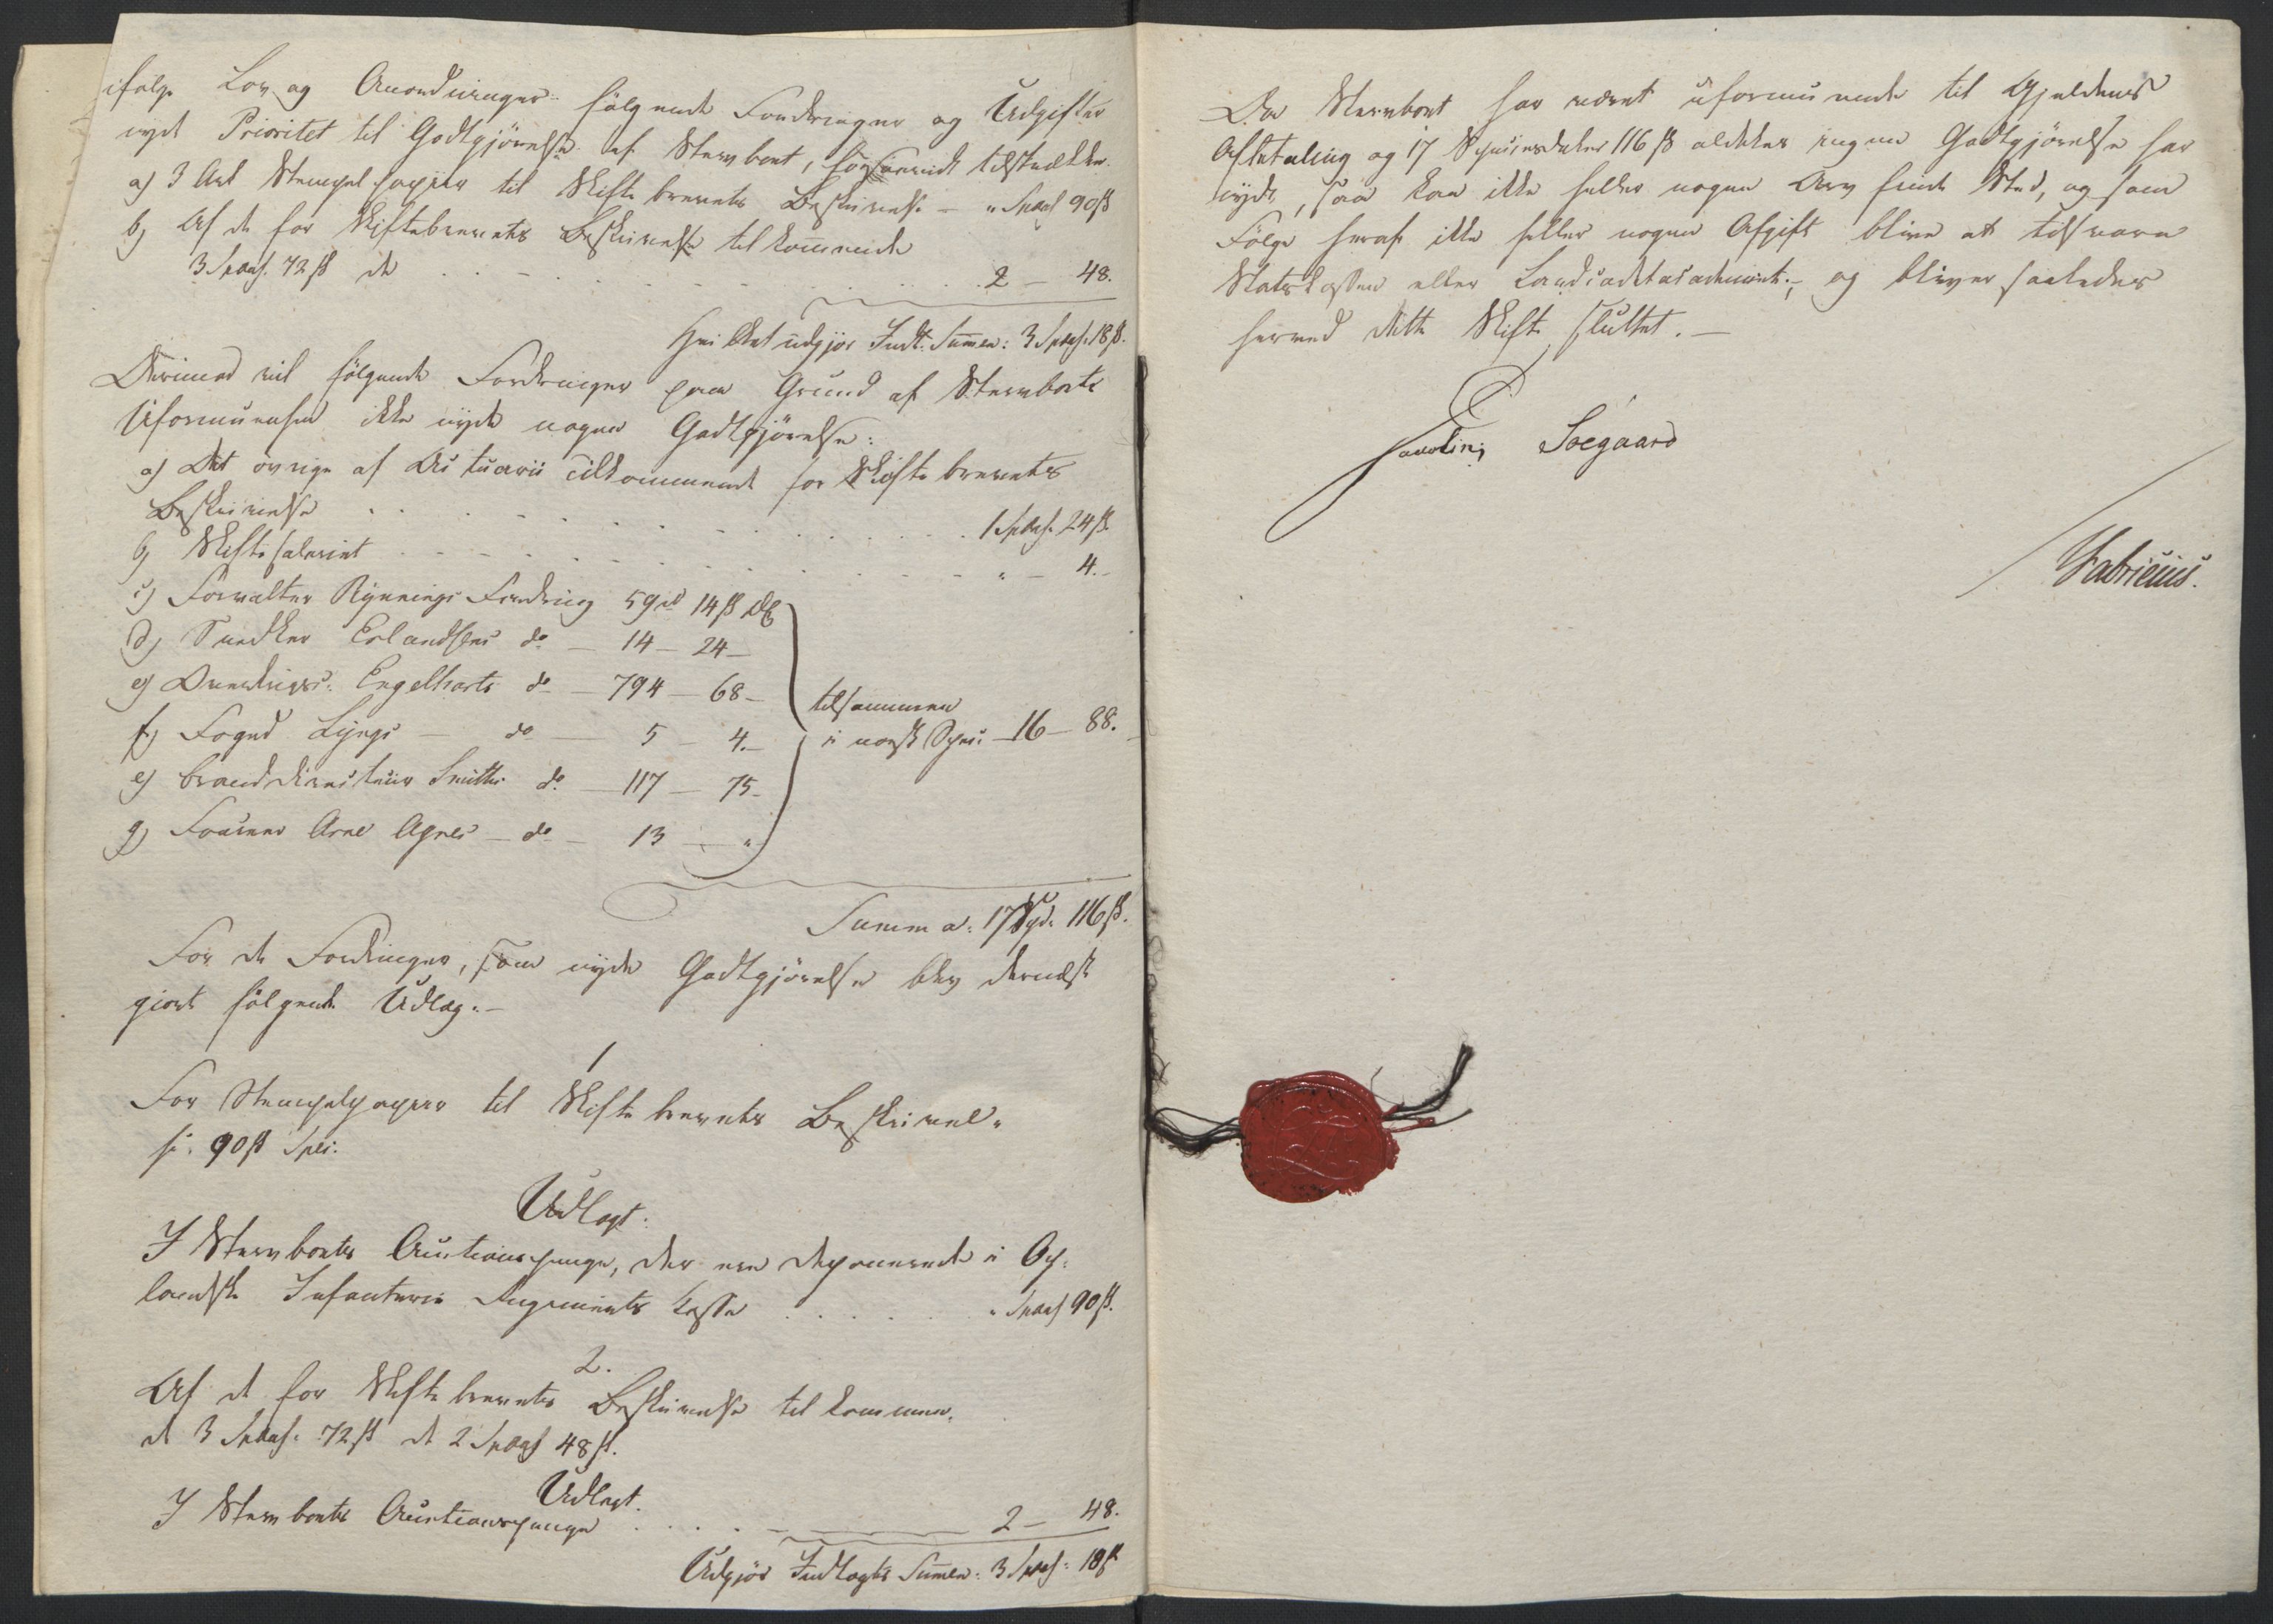 ifølge Lov og Anordninger følgende Fordringer og Udgifter
nyde Prioritet til Godtgjörelse af Stervboet, forsaavidt tilstrækker
a) 3 Ark Stempelpapiir til Skiftebrevets Beskrivelse - " Spds 90 ß
b) Af de for Skiftebrevets Beskrivelse tilkommende
3 Spds. 72 ß de . . . . 2 - 48.
Hvilket udgjør Indt. Summen: 3 Spds. 18 ß.
Derimod vil følgende Fordringer paa Grund af Stervboets
Uformuenhed ikke nyde nogen Godtgjörelse:
a) Det øvrige af Actuarii Tilkommende for Skiftebrevets
Beskrivelse . . . . 1 Spds. 24 ß.
b) Skiftesalariet . . . . " - 4.-
c) Forvalter Rynnings Fordring 59 rd 14 ß
d) Snedker Erlandsens do - 14 - 24 -
e) Engelharts do - 794 - 68 -
f) Foged Lyngs - do - 5 - 4.-
tilsammen
i norsk Speci - 16 - 88.
e) Branddirecteur Smiths do. - 117 - 75 -
g) Arne Agnes - do - 13 - "
Summa: 17 Spd. 116 ß.
For de Fordringer, som nyde Godtgjörelse blev dernæst
giort følgende Udlæg.-
1
For Stempelpapiir til Skiftebrevets Beskrivel-
se. 90 ß Spec:
Udlagt:
I Stervboets Auctionspenge, der ere deponerede i Op-
landske Infanterie Regiments Kasse . . . . " Spds 90 ß.
2.
Af de for Skiftebrevets Beskrivelse tilkommen-
de 3 Spds. 72 ß de 2 Spds 48 ß.
Udlagt.
I Stervboets Auctionspenge . . . . 2 - 48.
Udgjør Indtægts Summen: 3 Spds: 18 ß
Da Stervboet har været uformuende til Gjeldens
Afbetaling og 17 Speciesdaler 116 ß aldeles ingen Godtgjörelse har
nydt, saa kan ikke heller nogen Arv finde Sted, og som
Følge heraf ikke heller nogen Afgift blive at tilsvare
Statskassen eller Landcadetacademiet.-, og bliver saaledes
hermed dette Skifte sluttet. -
Soegaard
Fabricius.